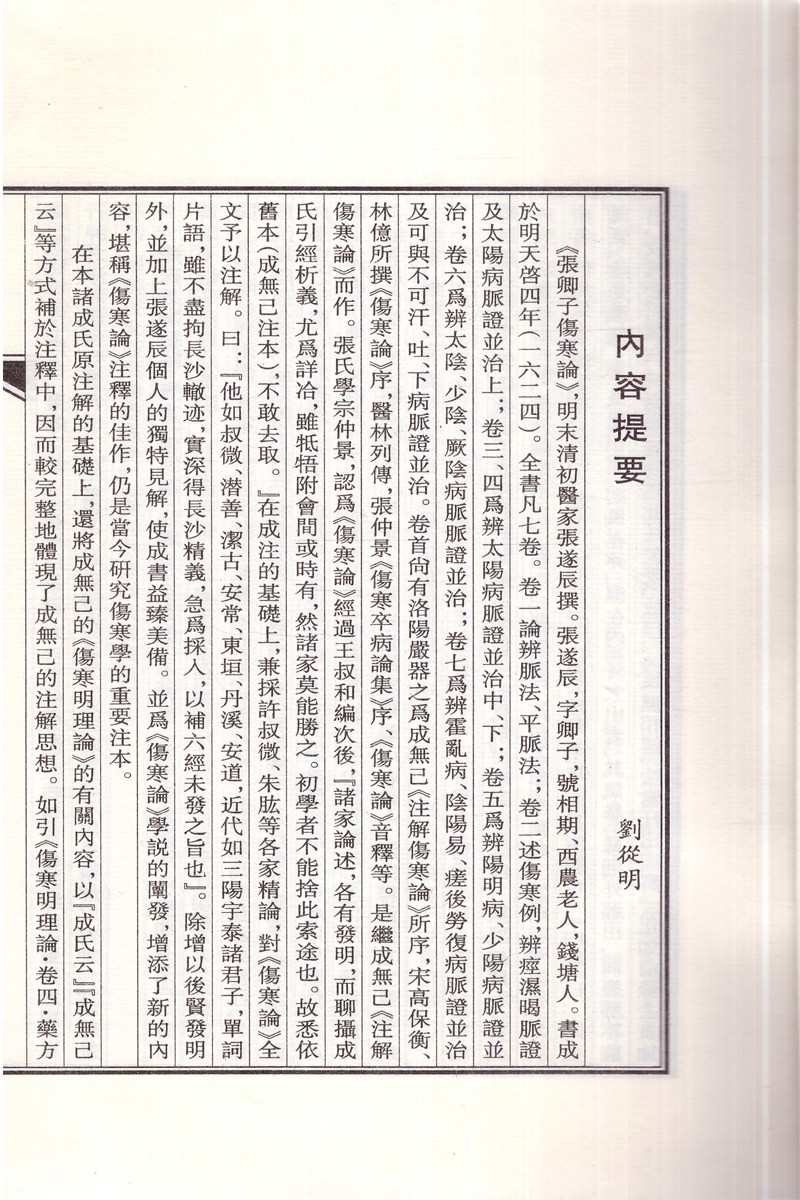 內容提要
劉從明
《張卿子傷寒論》，明末清初醫家張遂辰撰。張遂辰，字卿子，號相期、西農老人，錢塘人。書成
於明天啓四年（一六二四）。全書凡七卷。卷一論辨脈法、平脈法；卷二述傷寒例，辨痙濕暍脈證
及太陽病脈證並治上；卷三、四爲辨太陽病脈證並治中、下；卷五爲辨陽明病、少陽病脈證並
治；卷六爲辨太陰、少陰、厥陰病脈脈證並治；卷七爲辨霍亂病、陰陽易、瘥後勞復病脈證並治
及可與不可汗、吐、下病脈證並治。卷首尚有洛陽嚴器之爲成無己《注解傷寒論》所序，宋高保衡、
林億所撰《傷寒論》序，醫林列傳，張仲景《傷寒卒病論集》序、《傷寒論》音釋等。是繼成無己《注解
傷寒論》而作。張氏學宗仲景，認爲《傷寒論》經過王叔和編次後，『諸家論述，各有發明，而聊攝成
氏引經析義，尤爲詳洽，雖牴牾附會間或時有，然諸家莫能勝之。初學者不能捨此索途也。故悉依
舊本（成無己注本），不敢去取。』在成注的基礎上，兼採許叔微、朱肱等各家精論，對《傷寒論》全
文予以注解。曰：『他如叔微、潛善、潔古、安常、東垣、丹溪、安道，近代如三陽宇泰諸君子，單詞
片語，雖不盡拘長沙轍迹，實深得長沙精義，急爲採人，以補六經未發之旨也』。除增以後賢發明
外，並加上張遂辰個人的獨特見解，使成書益臻美備。並爲《傷寒論》學説的闡發，增添了新的內
容，堪稱《傷寒論》注釋的佳作，仍是當今研究傷寒學的重要注本。
在本諸成氏原注解的基礎上，還將成無己的《傷寒明理論》的有關內容，以『成氏云』『成無己
云』等方式補於注釋中，因而較完整地體現了成無己的注解思想。如引《傷寒明理論·卷四·藥方